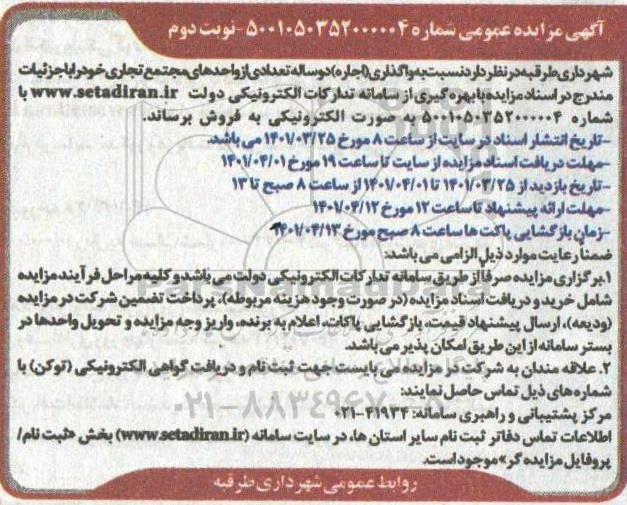 آگهی مزایده عمومی شماره ۵۰۰۱۰۵۰۳۵۲۰۰۰۰۰۴ -نوبت دوم
شهرداری طرقبه در نظر دارد نسبت به واگذاری (اجاره) دو ساله تعدادی از واحدهای مجتمع تجاری خود را با جزئیات
مندرج در اسناد مزایده با بهره گیری از سامانه تدارکات الکترونیکی دولت www.setadiran.ir با
شماره ۵۰۰۱۰۵۰۳۵۲۰۰۰۰۰۴ به صورت الکترونیکی به فروش برساند.
-تاریخ انتشار اسناد در سایت از ساعت ۸ مورخ ۱۴۰۱/۰۳/۲۵ می باشد.
-مهلت دریافت اسناد مزایده از سایت تا ساعت ۱۹ مورخ ۱۴۰۱/۰۴/۰۱
-تاریخ بازدید از ۱۴۰۱/۰۳/۲۵ تا ۱۴۰۱/۰۴/۰۱ از ساعت ۸ صبح تا ۱۳
-مهلت ارائه پیشنهاد تا ساعت ۱۲ مورخ ۱۴۰۱/۰۴/۱۲
-زمان بازگشایی پاکت ها ساعت ۸ صبح مورخ ۱۴۰۱/۰۴/۱۳
ضمناً رعایت موارد ذیل الزامی می باشد:
۱.برگزاری مزایده صرفاً از طریق سامانه تدارکات الکترونیکی دولت می باشد و کلیه مراحل فرآیند مزایده
شامل خرید و دریافت اسناد مزایده (در صورت وجود هزینه مربوطه)، پرداخت تضمین شرکت در مزایده
(ودیعه)، ارسال پیشنهاد قیمت، بازگشایی پاکات، اعلام به برنده، واریز وجه مزایده و تحویل واحدها در
بستر سامانه از این طریق امکان پذیر می باشد.
۲. علاقه مندان به شرکت در مزایده می بایست جهت ثبت نام و دریافت گواهی الکترونیکی (توکن) با
شماره های ذیل تماس حاصل نمایند:
مرکز پشتیبانی و راهبری سامانه: ۴۱۹۳۴-۰۲۱
اطلاعات تماس دفاتر ثبت نام سایر استان ها، در سایت سامانه (www.setadiran.ir) بخش «ثبت نام/
پروفایل مزایده گر» موجود است.
روابط عمومی شهرداری طرقبه